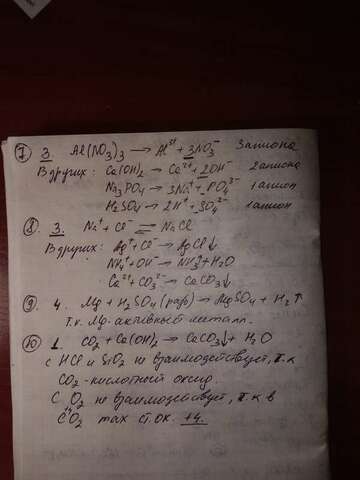 7) 3 Al(NO₃)₃ → Al³⁺ + 3NO₃⁻ 3 аниона
В других: Ca(OH)₂ → Ca²⁺ + 2OH⁻ 2 аниона
Na₃PO₄ → 3Na⁺ + PO₄³⁻ 1 анион
H₂SO₄ → 2H⁺ + SO₄²⁻ 1 анион
8) 3. Na⁺ + Cl⁻ ⇌ NaCl
В других: Ag⁺ + Cl⁻ → AgCl↓
NH₄⁺ + OH⁻ → NH₃↑ + H₂O
Ca²⁺ + CO₃²⁻ → CaCO₃↓
9) 4. Mg + H₂SO₄ (разб) → MgSO₄ + H₂↑
т.к. Mg - активный металл.
10) 1 CO₂ + Ca(OH)₂ → CaCO₃↓ + H₂O
с HCl и SiO₂ не взаимодействует, т.к
CO₂ - кислотный оксид.
С O₂ не взаимодействует, т.к в
C⁺⁴O₂ max ст.ок. +4.